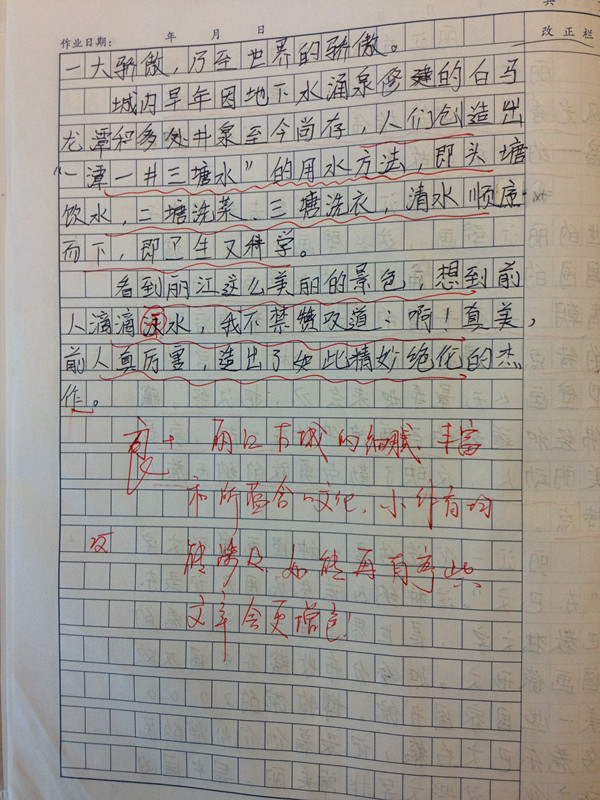 共
作业日期： 年 月 日 改正栏
一大骄傲，乃至世界的骄傲。
城内早年因地下水涌泉修建的白马
龙潭和多处井泉至今尚存，人们创造出
“一潭一井三塘水”的用水方法，即头塘
饮水，二塘洗菜、三塘洗衣，清水顺流
而下，即卫生又科学。
看到丽江这么美丽的景色，想到前
人滴滴汗水，我不禁赞叹道：啊！真美，
前人真厉害，造出了如此精妙绝伦的杰
作。
良+ 丽江古城的细腻、丰富
和所蕴含的文化，小作者均
能涉及，如能再有序些
文章会更增色！